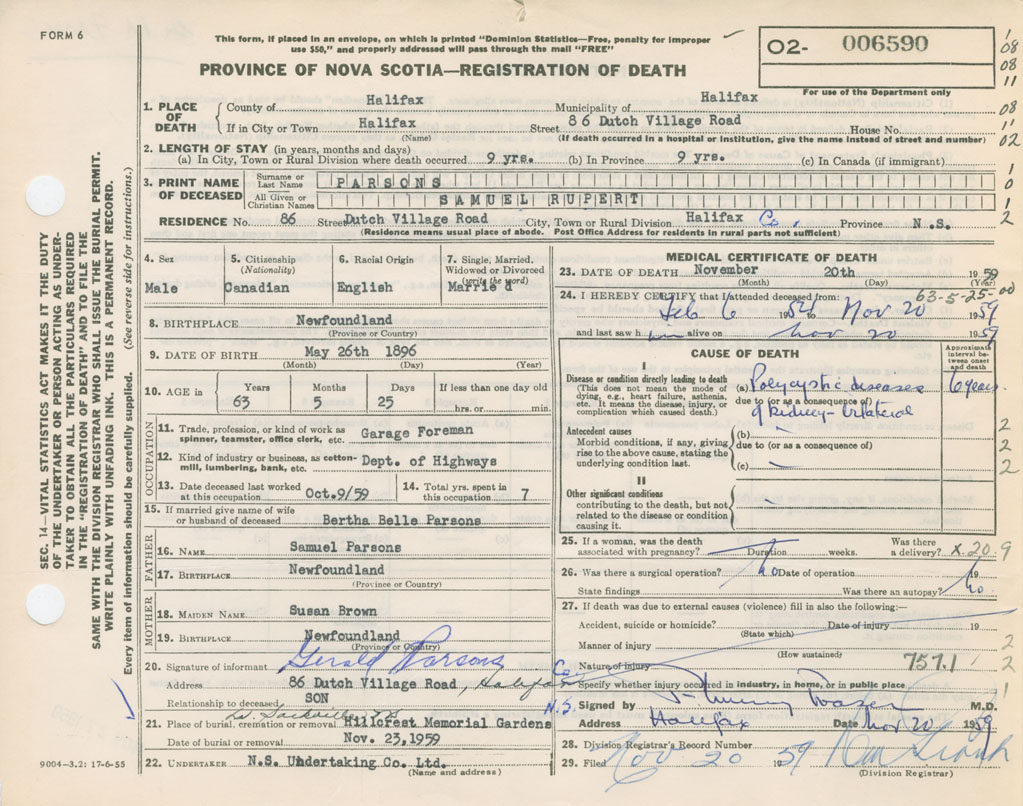 FORM 6
This form, if placed in an envelope, on which is printed "Dominion Statistics—Free, penalty for improper
use $50," and properly addressed will pass through the mail "FREE"
PROVINCE OF NOVA SCOTIA—REGISTRATION OF DEATH
O2- 006590
For use of the Department only
1
08
08
11
08
11
02
1
0
1
2
SEC. 14—VITAL STATISTICS ACT MAKES IT THE DUTY
OF THE UNDERTAKER OR PERSON ACTING AS UNDER-
TAKER TO OBTAIN ALL THE PARTICULARS REQUIRED
IN THE "REGISTRATION OF DEATH" AND TO FILE THE
SAME WITH THE DIVISION REGISTRAR WHO SHALL ISSUE THE BURIAL PERMIT.
WRITE PLAINLY WITH UNFADING INK. THIS IS A PERMANENT RECORD.
Every item of information should be carefully supplied. (See reverse side for instructions.)
1. PLACE OF DEATH
County of Halifax Municipality of Halifax
If in City or Town Halifax Street 86 Dutch Village Road House No.
(Name) (If death occurred in a hospital or institution, give the name instead of street and number)
2. LENGTH OF STAY (in years, months and days)
(a) In City, Town or Rural Division where death occurred 9 yrs. (b) In Province 9 yrs. (c) In Canada (if immigrant)
3. PRINT NAME OF DECEASED
Surname or Last Name PARSONS
All Given or Christian Names SAMUEL RUPERT
RESIDENCE No. 86 Street Dutch Village Road City, Town or Rural Division Halifax Co., Province N.S.
(Residence means usual place of abode. Post Office Address for residents in rural parts not sufficient)
4. Sex
Male
5. Citizenship (Nationality)
Canadian
6. Racial Origin
English
7. Single, Married, Widowed or Divorced (write the word)
Married
8. BIRTHPLACE Newfoundland
(Province or Country)
9. DATE OF BIRTH May 26th 1896
(Month) (Day) (Year)
10. AGE in Years Months Days If less than one day old
63 5 25 hrs. or min.
OCCUPATION
11. Trade, profession, or kind of work as
spinner, teamster, office clerk, etc. Garage Foreman
12. Kind of industry or business, as cotton-
mill, lumbering, bank, etc. Dept. of Highways
13. Date deceased last worked
at this occupation Oct.9/59
14. Total yrs. spent in
this occupation 7
15. If married give name of wife
or husband of deceased Bertha Belle Parsons
FATHER
16. NAME Samuel Parsons
17. BIRTHPLACE Newfoundland
(Province or Country)
MOTHER
18. MAIDEN NAME Susan Brown
19. BIRTHPLACE Newfoundland
(Province or Country)
20. Signature of informant Gerald Parsons
Address 86 Dutch Village Road, Halifax Co. N.S.
Relationship to deceased SON
21. Place of burial, cremation or removal Hillcrest Memorial Gardens
Date of burial or removal Nov. 23,1959
22. UNDERTAKER N.S. Undertaking Co. Ltd.
(Name and address)
9004—3.2: 17-6-55
MEDICAL CERTIFICATE OF DEATH
23. DATE OF DEATH November 20th 1959
(Month) (Day) (Year)
63-5-25-00
24. I HEREBY CERTIFY that I attended deceased from:
Feb 6 1954 to Nov 20 1959
and last saw him alive on Nov 20 1959
CAUSE OF DEATH
Approximate interval between onset and death
I
Disease or condition directly leading to death
(This does not mean the mode of
dying, e.g., heart failure, asthenia,
etc. It means the disease, injury, or
complication which caused death.)
(a) Polycystic diseases 6 years
due to (or as a consequence of)
of kidney - bilateral
Antecedent causes
Morbid conditions, if any, giving
rise to the above cause, stating the
underlying condition last.
(b)
due to (or as a consequence of)
(c)
2
2
2
II
Other significant conditions
contributing to the death, but not
related to the disease or condition
causing it.
25. If a woman, was the death
associated with pregnancy? Duration weeks. Was there
a delivery? X 20.9
26. Was there a surgical operation? No Date of operation 19
State findings Was there an autopsy? No.
27. If death was due to external causes (violence) fill in also the following:—
Accident, suicide or homicide? Date of injury 19
(State which)
Manner of injury 2
(How sustained)
Nature of injury 757.1 2
Specify whether injury occurred in industry, in home, or in public place 1
Signed by M.D.
Address Halifax Date Nov 20 1959
28. Division Registrar's Record Number
29. Filed Nov 20 1959
(Division Registrar)